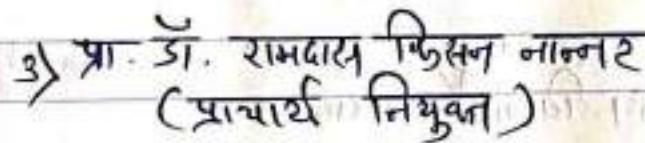 ३) प्रा. डॉ. रामदास किसन नान्नर
(प्राचार्य नियुक्त)